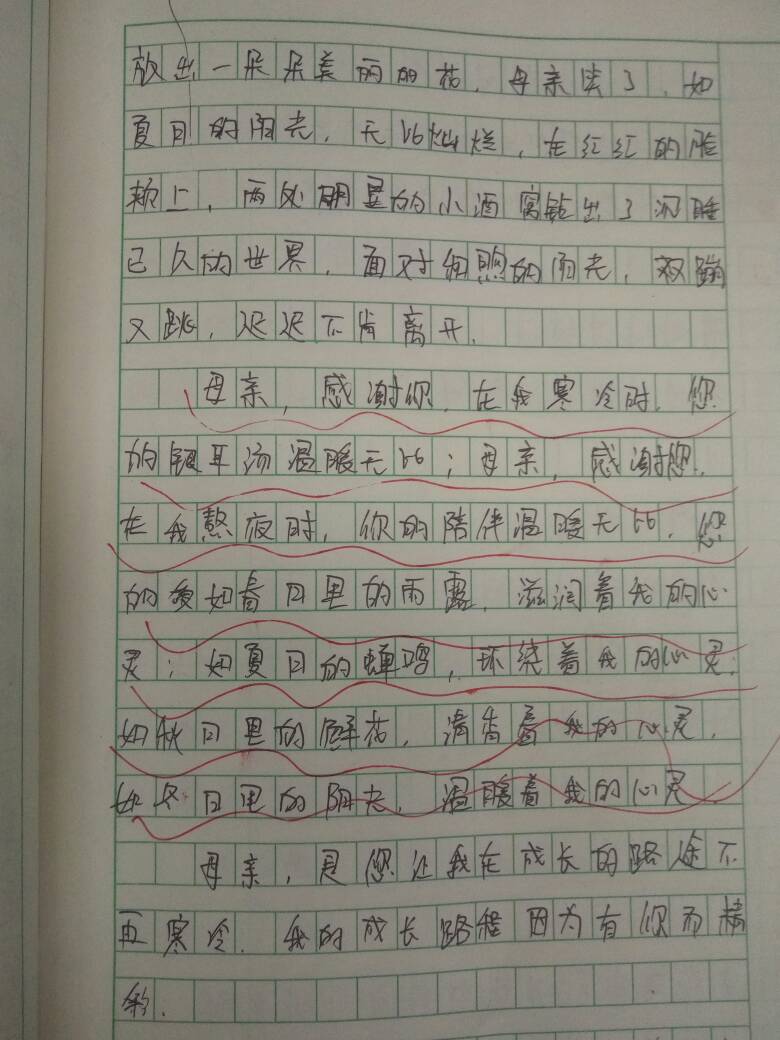 放出一朵朵美丽的花，母亲笑了，如
夏日的阳光，无比灿烂，在红红的脸
颊上，两处明显的小酒窝钻出了沉睡
已久的世界，面对和煦的阳光，双蹦
又跳，迟迟不肯离开．
母亲，感谢你，在我寒冷时，您
的银耳汤温暖无比；母亲，感谢您，
在我熬夜时，你的陪伴温暖无比，您
的爱如春日里的雨露，滋润着我的心
灵；如夏日的蝉鸣，环绕着我的心灵；
如秋日里的鲜花，清香着我的心灵，
如冬日里的阳光，温暖着我的心灵．
母亲，是您让我在成长的路途不
再寒冷．我的成长路程因为有你而精
彩．